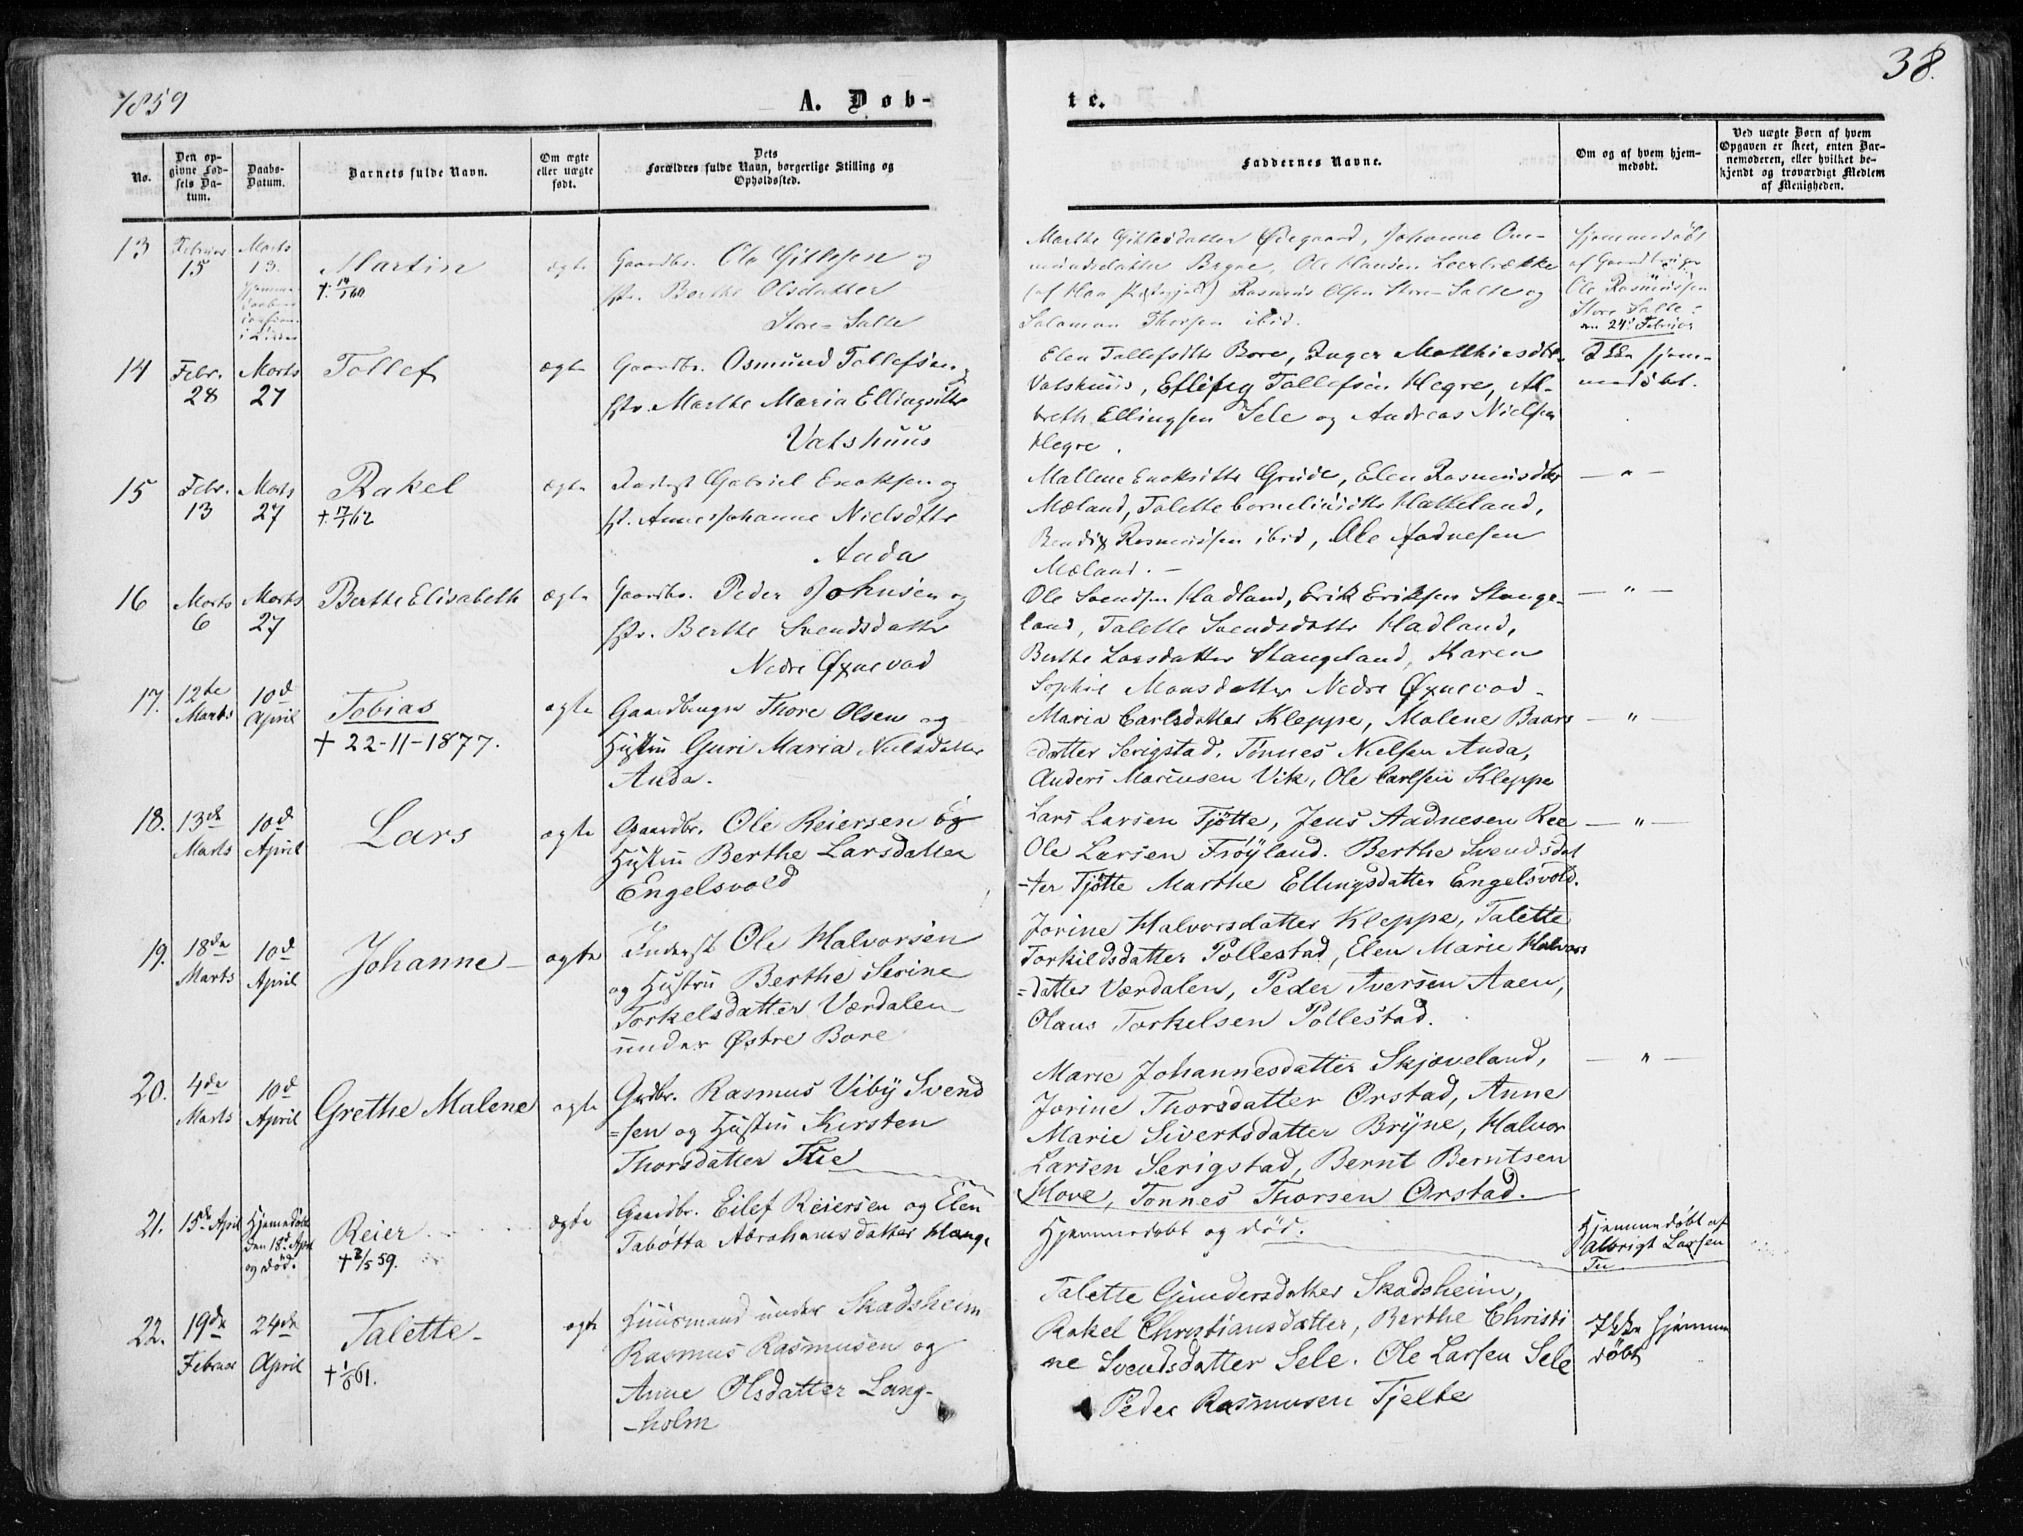 1859
A. Døb-
te.
38.
No.
Den op-
givne Fød-
sels Da-
tum.
Daabs-
Datum.
Barnets fulde Navn.
Om ægte
eller uægte
født.
Dets
Forældres fulde Navn, borgerlige Stilling og
Opholdssted.
Faddernes Navne.
Om og af hvem hjem-
medøbt.
Ved uægte Børn af hvem
Opgaven er skeet, enten Bar-
nemoderen, eller hvilket be-
kjendt og troværdigt Medlem
af Menigheden.
13
Februar
15
Marts
13.
Martin
ægte
Gaardbr. Ole Gitlesen og
Hstr. Berthe Olsdatter
Store-Salte
Marthe Gitlesdatter Ødegaard, Johanne
Bryne, Ole Hansen
Rasmus Olsen Store-Salte og
Salamon Thorsen ibid.
Hjemmedøbt
af Gaardbruger
Ole Rasmussen
Store Salte
den 24. Februar
14
Febr.
28
Marts
27
Tollef
ægte
Gaardbr. Osmund Tollefsen og
Hstr. Marthe Maria Ellingsdtr
Vatshuus
Elen Tollefsdtr Bore, Inger Matthiesdtr
Vatshuus, Elling Tollefsen Hegre, Al-
breth Ellingsen Sele og Andreas Nielsen
Hegre.
Ikke hjem-
medøbt.
15
Febr.
13
Marts
27
Rakel
† 17/1 62
ægte
Gabriel Enoksen og
H. Anne Johanne Nielsdtr
Anda
Mallene Enoksdtr Grude, Elen Rasmusdtr
Mæland, Talette Corneliusdtr Hatteland,
Bendix Rasmussen ibid, Ole Aadnesen
Mæland. -
— " —
16
Marts
6
Marts
27
Berthe Elisabeth
ægte
Gaardbr. Peder Johnsen og
Hstr. Berthe Svendsdatter
Nedre Øxnevad
Ole Svendsen Hadland, Erik Eriksen Stange-
land, Talette Svendsdatter Hadland,
Berthe Larsdatter Stangeland, Karen
Sophie Monsdatter Nedre Øxnevad.
— " —
17.
12te
Marts
10d
April
Tobias
† 22-11-1877.
ægte
Gaardbruger Thore Olsen og
Hustru Guri Maria Nielsdatter
Anda.
Maria Carlsdatter Kleppe, Malene Baars
datter Serigstad, Tønnes Nielsen Anda,
Anders Mariusen Vik, Ole Carlsen Kleppe
— " —
18.
13de
Marts
10d
April
Lars
ægte
Gaardbr. Ole Reiersen og
Hustru Berthe Larsdatter
Engelsvold
Lars Larsen Tjøtte, Jens Aadnesen Ree
Ole Larsen Frøyland. Berthe Svendsdat
-ter Tjøtte Marthe Ellingsdatter Engelsvold.
— " —
19.
18de
Marts
10d
April
Johanne
ægte
Inderst Ole Halvorsen
og Hustru Berthe Serine
Torkelsdatter Værdalen
under Østre Bore
Jorine Halvorsdatter Kleppe, Talette
Torkildsdatter Pollestad, Elen Marie Halvors
=datter Værdalen, Peder Iversen Aaen,
Olaus Torkelsen Pollestad.
20.
4de
Marts
10d
April
Grethe Malene
ægte
Grdbr. Rasmus Viby Svend
=sen og Hustru Kirsten
Thorsdatter Tue
Marie Johannesdatter Skjæveland,
Jorine Thorsdatter Orstad, Anne
Marie Sivertsdatter Bryne, Halvor
Larsen Serigstad, Bernt Berntsen
Hove, Tønnes Thorsen Orstad.
— " —
21.
15de April
Hjemmedøbt
den 18d April
og død.
Reier
† 2/5 59.
ægte
Gaardbr. Eilef Reiersen og Elen
Tabotta Abrahamsdatter Hauge
Hjemmedøbt og død.
Hjemmedøbt af
Albrigt Larsen
Tu
22.
19de
Februar
24de
April
Talette
ægte
Huusmand under Skadsheim
Rasmus Rasmusen og
Anne Olsdatter Lang-
-holm
Talette Gundersdatter Skadsheim,
Rakel Christiansdatter, Berthe Christi
ne Svendsdatter Sele. Ole Larsen Sele
Peder Rasmusen Tjelte
Ikke hjemme
døbt